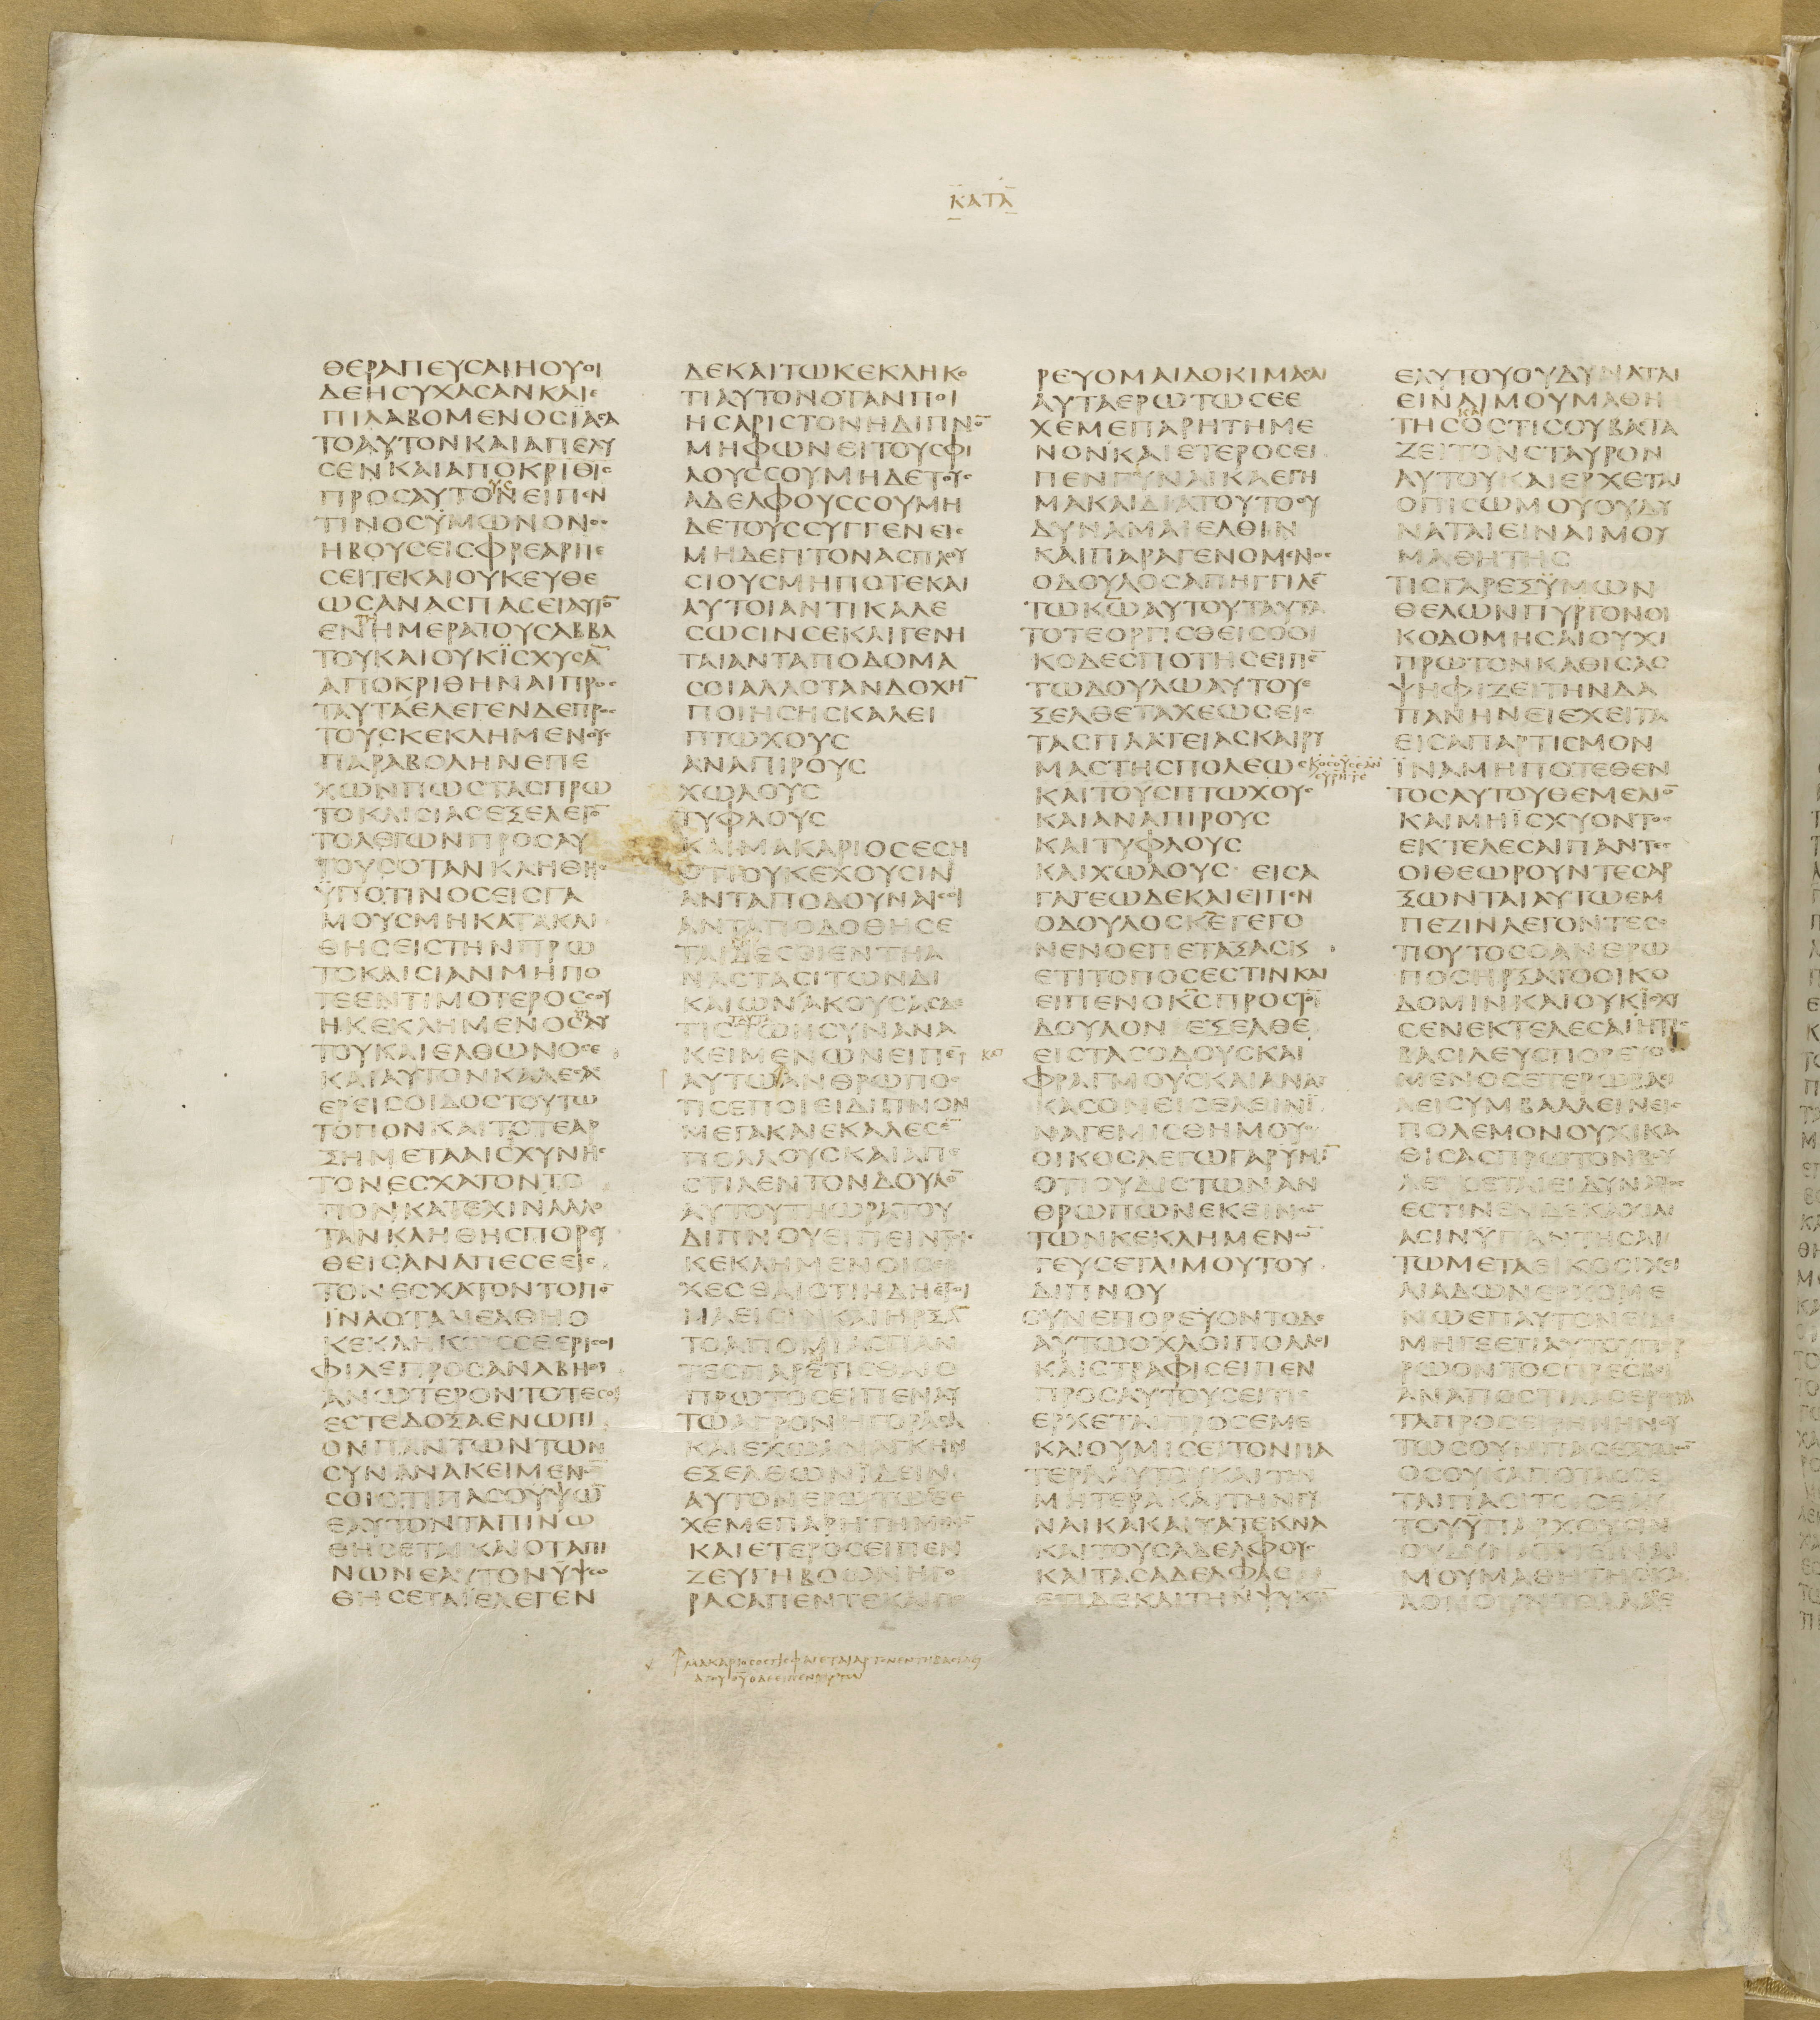 ΚΑΤΑ
ΘΕΡΑΠΕΥϹΑΙΗΟΥΟΙ
ΔΕΗϹΥΧΑϹΑΝΚΑΙΕ
ΠΙΛΑΒΟΜΕΝΟϹΪΑϹΑ
ΤΟΑΥΤΟΝΚΑΙΑΠΕΛΥ
ϹΕΝΚΑΙΑΠΟΚΡΙΘΙϹ
ΠΡΟϹΑΥΤΟΝΕΙΠΕΝ
ΤΙΝΟϹΥΜΩΝΟΝΟϹ
ΗΒΟΥϹΕΙϹΦΡΕΑΡΠΕ
ϹΕΙΤΕΚΑΙΟΥΚΕΥΘΕ
ΩϹΑΝΑϹΠΑϹΕΙΑΥΤΟ̅
ΕΝΗΜΕΡΑΤΟΥϹΑΒΒΑ
ΤΟΥΚΑΙΟΥΚΪϹΧΥϹΑ̅
ΑΠΟΚΡΙΘΗΝΑΙΠΡΟϹ
ΤΑΥΤΑΕΛΕΓΕΝΔΕΠΡΟϹ
ΤΟΥϹΚΕΚΛΗΜΕΝΟΥϹ
ΠΑΡΑΒΟΛΗΝΕΠΕ
ΧΩΝΠΩϹΤΑϹΠΡΩ
ΤΟΚΛΙϹΙΑϹΕΞΕΛΕΓΟ̅
ΤΟΛΕΓΩΝΠΡΟϹΑΥ
ΤΟΥϹΟΤΑΝΚΛΗΘΗϹ
ΫΠΟΤΙΝΟϹΕΙϹΓΑ
ΜΟΥϹΜΗΚΑΤΑΚΛΙ
ΘΗϹΕΙϹΤΗΝΠΡΩ
ΤΟΚΛΙϹΙΑΝΜΗΠΟ
ΤΕΕΝΤΙΜΟΤΕΡΟϹϹΟΥ
ΗΚΕΚΛΗΜΕΝΟϹΑΥ
ΤΟΥΚΑΙΕΛΘΩΝΟϹΕ
ΚΑΙΑΥΤΟΝΚΑΛΕϹΑϹ
ΕΡΕΙϹΟΙΔΟϹΤΟΥΤΩ
ΤΟΠΟΝΚΑΙΤΟΤΕΑΡ
ΞΗΜΕΤΑΑΙϹΧΥΝΗϹ
ΤΟΝΕϹΧΑΤΟΝΤΟ
ΠΟΝΚΑΤΕΧΙΝΑΛΛΟ
ΤΑΝΚΛΗΘΗϹΠΟΡΕΥ
ΘΕΙϹΑΝΑΠΕϹΕΕΙϹ
ΤΟΝΕϹΧΑΤΟΝΤΟΠΟ̅
ΪΝΑΟΤΑΝΕΛΘΗΟ
ΚΕΚΛΗΚΩϹϹΕΕΡΙϹΟΙ
ΦΙΛΕΠΡΟϹΑΝΑΒΗΘΙ
ΑΝΩΤΕΡΟΝΤΟΤΕϹΟΙ
ΕϹΤΕΔΟΞΑΕΝΩΠΙ
ΟΝΠΑΝΤΩΝΤΩΝ
ϹΥΝΑΝΑΚΕΙΜΕΝΩ̅
ϹΟΙΟΤΙΠΑϹΟΥΨΩ̅
ΕΑΥΤΟΝΤΑΠΙΝΩ
ΘΗϹΕΤΑΙΚΑΙΟΤΑΠΙ
ΝΩΝΕΑΥΤΟΝΫΨΩ
ΘΗϹΕΤΑΙΕΛΕΓΕΝ
ΔΕΚΑΙΤΩΚΕΚΛΗΚΟ
ΤΙΑΥΤΟΝΟΤΑΝΠΟΙ
ΗϹΑΡΙϹΤΟΝΗΔΙΠΝΟ̅
ΜΗΦΩΝΕΙΤΟΥϹΦΙ
ΛΟΥϹϹΟΥΜΗΔΕΤΟΥϹ
ΑΔΕΛΦΟΥϹϹΟΥΜΗ
ΔΕΤΟΥϹϹΥΓΓΕΝΕΙϹ
ΜΗΔΕΓΙΤΟΝΑϹΠΛΟΥ
ϹΙΟΥϹΜΗΠΟΤΕΚΑΙ
ΑΥΤΟΙΑΝΤΙΚΑΛΕ
ϹΩϹΙΝϹΕΚΑΙΓΕΝΗ
ΤΑΙΑΝΤΑΠΟΔΟΜΑ
ϹΟΙΑΛΛΟΤΑΝΔΟΧΗ̅
ΠΟΙΗϹΗϹΚΑΛΕΙ
ΠΤΩΧΟΥϹ
ΑΝΑΠΙΡΟΥϹ
ΧΩΛΟΥϹ
ΤΥΦΛΟΥϹ
ΚΑΙΜΑΚΑΡΙΟϹΕϹΗ
ΟΤΙΟΥΚΕΧΟΥϹΙΝ
ΑΝΤΑΠΟΔΟΥΝΑΙϹΟΙ
ΑΝΤΑΠΟΔΟΘΗϹΕ
ΤΑΙΔΕϹΟΙΕΝΤΗΑ
ΝΑϹΤΑϹΙΤΩΝΔΙ
ΚΑΙΩΝΑΚΟΥϹΑϹΔΕ
ΤΙϹΤΩΝϹΥΝΑΝΑ
ΚΕΙΜΕΝΩΝΕΙΠΕ̅
ΑΥΤΩΑΝΘΡΩΠΟϹ
ΤΙϹΕΠΟΙΕΙΔΙΠΝΟΝ
ΜΕΓΑΚΑΙΕΚΑΛΕϹΕ̅
ΠΟΛΛΟΥϹΚΑΙΑΠΕ
ϹΤΙΛΕΝΤΟΝΔΟΥΛΟ̅
ΑΥΤΟΥΤΗΩΡΑΤΟΥ
ΔΙΠΝΟΥΕΙΠΕΙΝΤΟΙϹ
ΚΕΚΛΗΜΕΝΟΙϹΕΡ
ΧΕϹΘΑΙΟΤΙΗΔΗΕΤΟΙ
ΜΑΕΙϹΙΝΚΑΙΗΡΞΑ̅
ΤΟΑΠΟΜΙΑϹΠΑΝ
ΤΕϹΠΑΡΕΤΙϹΘΑΙΟ
ΠΡΩΤΟϹΕΙΠΕΝΑΥ
ΤΩΑΓΡΟΝΗΓΟΡΑϹΑ
ΚΑΙΕΧΩΑΝΑΓΚΗΝ
ΕΞΕΛΘΩΝΪΔΕΙΝ
ΑΥΤΟΝΕΡΩΤΩϹΕΕ
ΧΕΜΕΠΑΡΗΤΗΜΕΝΟ̅
ΚΑΙΕΤΕΡΟϹΕΙΠΕΝ
ΖΕΥΓΗΒΟΩΝΗΓΟ
ΡΑϹΑΠΕΝΤΕΚΑΙΠΟ
ΜΑΚΑΡΙΟϹΟϹΤΙϹΦΑΓΕΤΑΙΑΡΤΟΝΕΝΤΗΒΑϹΙΛΕΙ
ΑΤΟΥΘΥΟΔΕΕΙΠΕΝΑΥΤΩ
ΡΕΥΟΜΑΙΔΟΚΙΜΑϹΑΙ
ΑΥΤΑΕΡΩΤΩϹΕΕ
ΧΕΜΕΠΑΡΗΤΗΜΕ
ΝΟΝΚΑΙΕΤΕΡΟϹΕΙ
ΠΕΝΓΥΝΑΙΚΑΕΓΗ
ΜΑΚΑΙΔΙΑΤΟΥΤΟΟΥ
ΔΥΝΑΜΑΙΕΛΘΙΝ
ΚΑΙΠΑΡΑΓΕΝΟΜΕΝΟϹ
ΟΔΟΥΛΟϹΑΠΗΓΓΙΛΕ̅
ΤΩΚΩΑΥΤΟΥΤΑΥΤΑ
ΤΟΤΕΟΡΓΙϹΘΕΙϹΟΟΙ
ΚΟΔΕϹΠΟΤΗϹΕΙΠΕ̅
ΤΩΔΟΥΛΩΑΥΤΟΥΕ
ΞΕΛΘΕΤΑΧΕΩϹΕΙϹ
ΤΑϹΠΛΑΤΕΙΑϹΚΑΙΡΥ
ΜΑϹΤΗϹΠΟΛΕΩϹ
ΚΑΙΤΟΥϹΠΤΩΧΟΥϹ
ΚΑΙΑΝΑΠΙΡΟΥϹ
ΚΑΙΤΥΦΛΟΥϹ
ΚΑΙΧΩΛΟΥϹ ΕΙϹΑ
ΓΑΓΕΩΔΕΚΑΙΕΙΠΕΝ
ΟΔΟΥΛΟϹΚΕΓΕΓΟ
ΝΕΝΟΕΠΕΤΑΞΑϹΚϹ
ΕΤΙΤΟΠΟϹΕϹΤΙΝΚΑΙ
ΕΙΠΕΝΟΚϹΠΡΟϹΤΟ̅
ΔΟΥΛΟΝ ΕΞΕΛΘΕ
ΕΙϹΤΑϹΟΔΟΥϹΚΑΙ
ΦΡΑΓΜΟΥϹΚΑΙΑΝΑΓ
ΚΑϹΟΝΕΙϹΕΛΘΙΝΪ
ΝΑΓΕΜΙϹΘΗΜΟΥΟ
ΟΙΚΟϹΛΕΓΩΓΑΡΥΜΙ̅
ΟΤΙΟΥΔΙϹΤΩΝΑΝ
ΘΡΩΠΩΝΕΚΕΙΝΩ̅
ΤΩΝΚΕΚΛΗΜΕΝΩ̅
ΓΕΥϹΕΤΑΙΜΟΥΤΟΥ
ΔΙΠΝΟΥ
ϹΥΝΕΠΟΡΕΥΟΝΤΟΔΕ
ΑΥΤΩΟΧΛΟΙΠΟΛΛΟΙ
ΚΑΙϹΤΡΑΦΙϹΕΙΠΕΝ
ΠΡΟϹΑΥΤΟΥϹΕΙΤΙϹ
ΕΡΧΕΤΑΙΠΡΟϹΕΜΕ
ΚΑΙΟΥΜΙϹΕΙΤΟΝΠΑ
ΤΕΡΑΑΥΤΟΥΚΑΙΤΗΝ
ΜΗΤΕΡΑΚΑΙΤΗΝΓΥ
ΝΑΙΚΑΚΑΙΤΑΤΕΚΝΑ
ΚΑΙΤΟΥϹΑΔΕΛΦΟΥϹ
ΚΑΙΤΑϹΑΔΕΛΦΑϹ
ΕΤΙΔΕΚΑΙΤΗΝΨΥΧΗ̅
ΕΑΥΤΟΥΟΥΔΥΝΑΤΑΙ
ΕΙΝΑΙΜΟΥΜΑΘΗ
ΤΗϹΟϹΤΙϹΟΥΒΑϹΤΑ
ΖΕΙΤΟΝϹΤΑΥΡΟΝ
ΑΥΤΟΥΚΑΙΕΡΧΕΤΑΙ
ΟΠΙϹΩΜΟΥΟΥΔΥ
ΝΑΤΑΙΕΙΝΑΙΜΟΥ
ΜΑΘΗΤΗϹ
ΤΙϹΓΑΡΕΞΫΜΩΝ
ΘΕΛΩΝΠΥΡΓΟΝΟΙ
ΚΟΔΟΜΗϹΑΙΟΥΧΙ
ΠΡΩΤΟΝΚΑΘΙϹΑϹ
ΨΗΦΙΖΕΙΤΗΝΔΑ
ΠΑΝΗΝΕΙΕΧΕΙΤΑ
ΕΙϹΑΠΑΡΤΙϹΜΟΝ
ΪΝΑΜΗΠΟΤΕΘΕΝ
ΤΟϹΑΥΤΟΥΘΕΜΕΛΙΟ̅
ΚΑΙΜΗΪϹΧΥΟΝΤΟϹ
ΕΚΤΕΛΕϹΑΙΠΑΝΤΕϹ
ΟΙΘΕΩΡΟΥΝΤΕϹΑΡ
ΞΩΝΤΑΙΑΥΤΩΕΜ
ΠΕΖΙΝΛΕΓΟΝΤΕϹΟ
ΤΙΟΥΤΟϹΟΑΝΘΡΩ
ΠΟϹΗΡΞΑΤΟΟΙΚΟ
ΔΟΜΙΝΚΑΙΟΥΚΪϹΧΥ
ϹΕΝΕΚΤΕΛΕϹΑΙΗΤΙϹ
ΒΑϹΙΛΕΥϹΠΟΡΕΥΟ
ΜΕΝΟϹΕΤΕΡΩΒΑϹΙ
ΛΕΙϹΥΜΒΑΛΛΕΙΝΕΙϹ
ΠΟΛΕΜΟΝΟΥΧΙΚΑ
ΘΙϹΑϹΠΡΩΤΟΝΒΟΥ
ΛΕΥϹΕΤΑΙΕΙΔΥΝΑΤΟϹ
ΕϹΤΙΝΕΝΔΕΚΑΧΙΛΙ
ΑϹΙΝΫΠΑΝΤΗϹΑΙ
ΤΩΜΕΤΑΕΙΚΟϹΙΧΙ
ΛΙΑΔΩΝΕΡΧΟΜΕ
ΝΩΕΠΑΥΤΟΝΕΙΔΕ
ΜΗΓΕΕΤΙΑΥΤΟΥΠΟΡ
ΡΩΟΝΤΟϹΠΡΕϹΒΙ
ΑΝΑΠΟϹΤΙΛΑϹΕΡΩΤΑ
ΤΑΠΡΟϹΕΙΡΗΝΗΝΟΥ
ΤΩϹΟΥΝΠΑϹΕΞΫΜΩ̅
ΟϹΟΥΚΑΠΟΤΑϹϹΕ
ΤΑΙΠΑϹΙΤΟΙϹΕΑΥ
ΤΟΥΫΠΑΡΧΟΥϹΙΝ
ΟΥΔΥΝΑΤΑΙΕΙΝΑΙ
ΜΟΥΜΑΘΗΤΗϹΚΑ